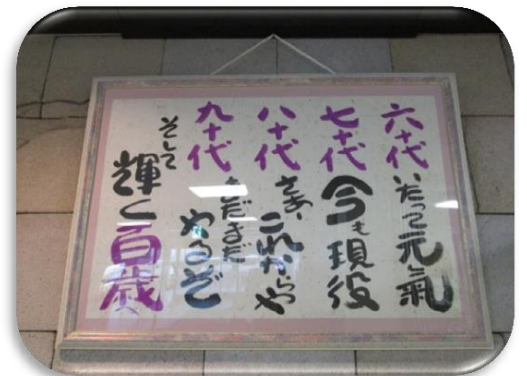 六十代いたって元氣
七十代今も現役
八十代さあ、これからや
九十代まだまだやるぞ
そして輝く百歳